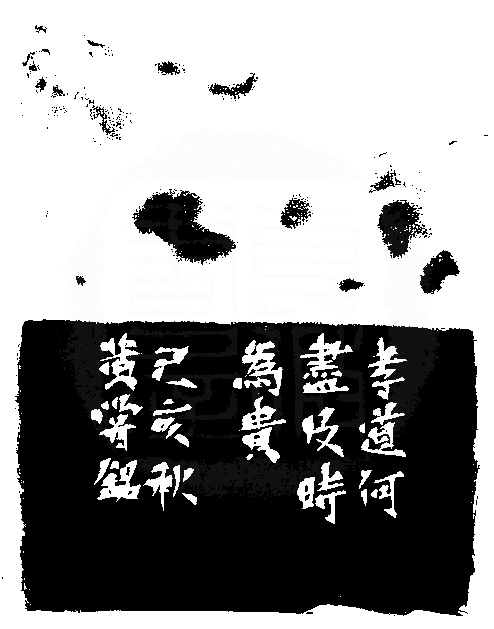 孝道何
盡及時
為貴
己亥秋
黃勞銘